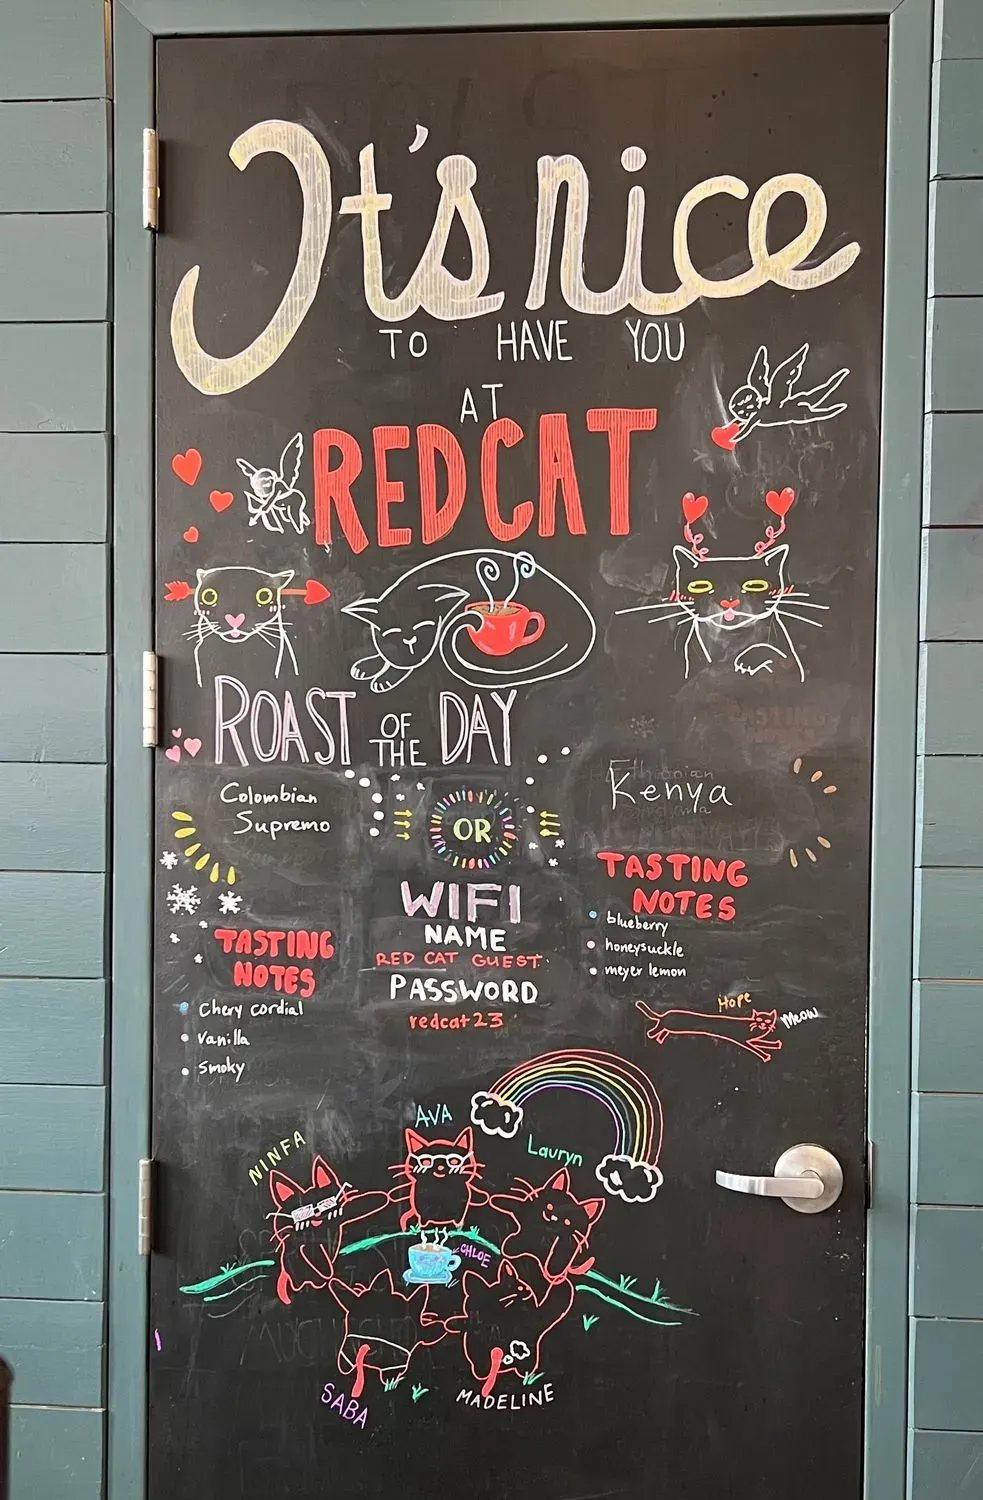 It's nice
TO HAVE YOU
AT
RED CAT
ROAST OF THE DAY
Colombian
Supremo
OR
Kenya
TASTING
NOTES
• Chery cordial
• vanilla
• smoky
WIFI
NAME
RED CAT GUEST
PASSWORD
redcat23
TASTING
NOTES
• blueberry
• honeysuckle
• meyer lemon
Hope
Meow
NINFA
AVA
Lauryn
CHLOE
SABA
MADELINE